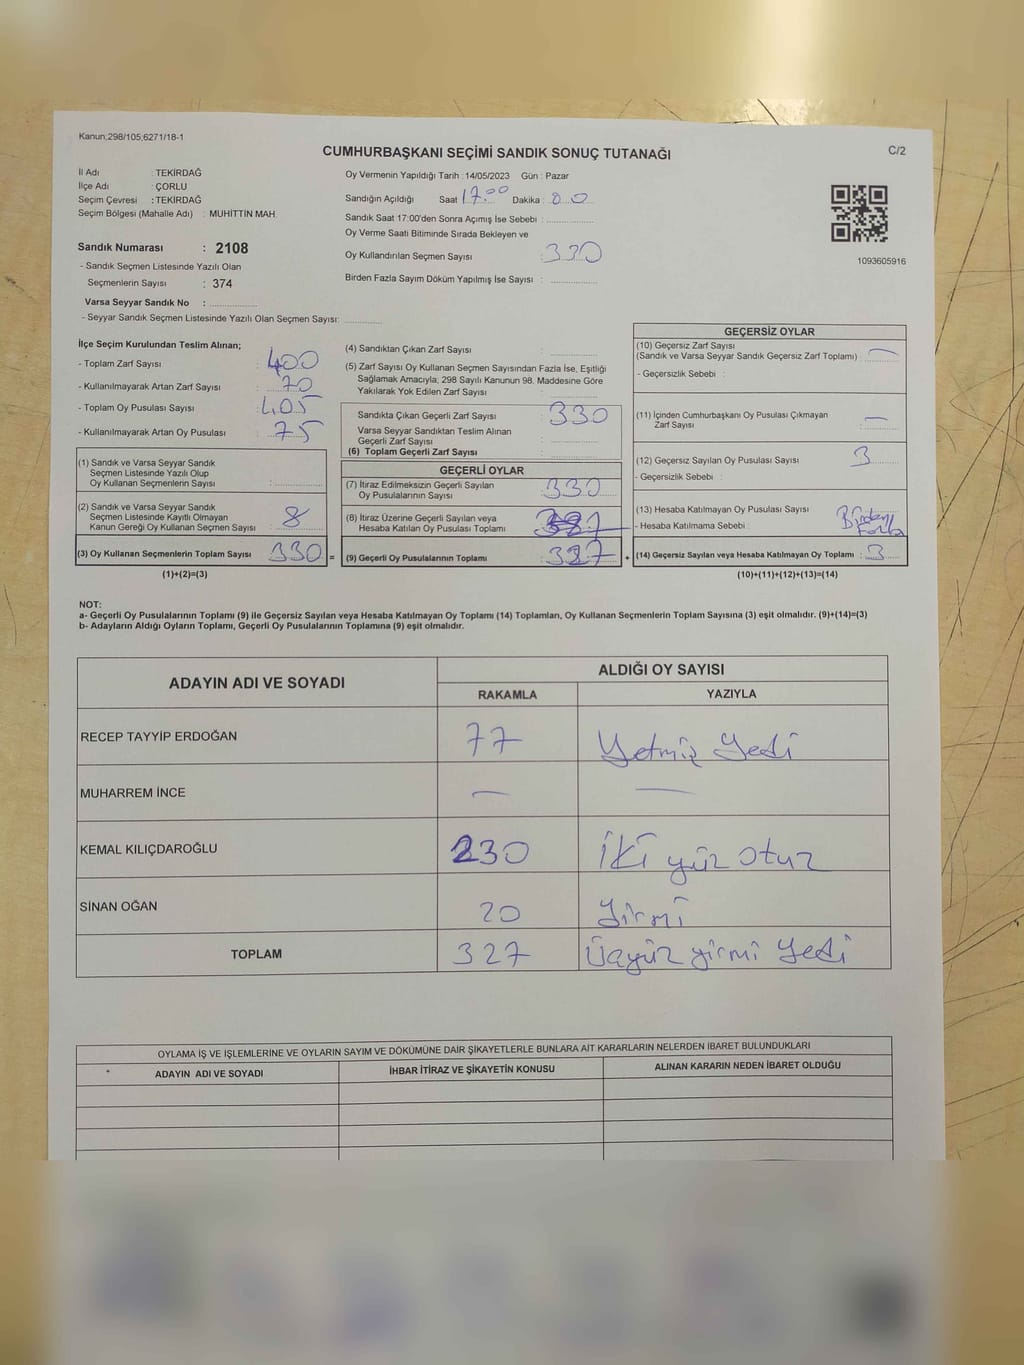 Kanun;298/105,6271/18-1
CUMHURBAŞKANI SEÇİMİ SANDIK SONUÇ TUTANAĞI
C/2
İl Adı : TEKİRDAĞ
İlçe Adı : ÇORLU
Seçim Çevresi : TEKİRDAĞ
Seçim Bölgesi (Mahalle Adı) : MUHİTTİN MAH.
Sandık Numarası : 2108
- Sandık Seçmen Listesinde Yazılı Olan
Seçmenlerin Sayısı : 374
Varsa Seyyar Sandık No :
- Seyyar Sandık Seçmen Listesinde Yazılı Olan Seçmen Sayısı:
Oy Vermenin Yapıldığı Tarih :14/05/2023 Gün : Pazar
Sandığın Açıldığı Saat 17.00 Dakika : 00
Sandık Saat 17:00'den Sonra Açımış İse Sebebi :
Oy Verme Saati Bitiminde Sırada Bekleyen ve
Oy Kullandırılan Seçmen Sayısı : 330
Birden Fazla Sayım Döküm Yapılmış İse Sayısı :
1093605916
İlçe Seçim Kurulundan Teslim Alınan;
- Toplam Zarf Sayısı : 400
- Kullanılmayarak Artan Zarf Sayısı : 70
- Toplam Oy Pusulası Sayısı : 405
- Kullanılmayarak Artan Oy Pusulası : 75
(1) Sandık ve Varsa Seyyar Sandık
Seçmen Listesinde Yazılı Olup
Oy Kullanan Seçmenlerin Sayısı :
(2) Sandık ve Varsa Seyyar Sandık
Seçmen Listesinde Kayıtlı Olmayan
Kanun Gereği Oy Kullanan Seçmen Sayısı : 8
(3) Oy Kullanan Seçmenlerin Toplam Sayısı : 330
=
(1)+(2)=(3)
(4) Sandıktan Çıkan Zarf Sayısı :
(5) Zarf Sayısı Oy Kullanan Seçmen Sayısından Fazla İse, Eşitliği
Sağlamak Amacıyla, 298 Sayılı Kanunun 98. Maddesine Göre
Yakılarak Yok Edilen Zarf Sayısı :
Sandıkta Çıkan Geçerli Zarf Sayısı : 330
Varsa Seyyar Sandıktan Teslim Alınan
Geçerli Zarf Sayısı :
(6) Toplam Geçerli Zarf Sayısı :
GEÇERLİ OYLAR
(7) İtiraz Edilmeksizin Geçerli Sayılan
Oy Pusulalarının Sayısı : 330
(8) İtiraz Üzerine Geçerli Sayılan veya
Hesaba Katılan Oy Pusulası Toplamı :
(9) Geçerli Oy Pusulalarının Toplamı : 327
+
GEÇERSİZ OYLAR
(10) Geçersiz Zarf Sayısı
(Sandık ve Varsa Seyyar Sandık Geçersiz Zarf Toplamı) : —
- Geçersizlik Sebebi :
(11) İçinden Cumhurbaşkanı Oy Pusulası Çıkmayan
Zarf Sayısı : —
(12) Geçersiz Sayılan Oy Pusulası Sayısı : 3
- Geçersizlik Sebebi :
(13) Hesaba Katılmayan Oy Pusulası Sayısı :
- Hesaba Katılmama Sebebi : Birden
Fazla
(14) Geçersiz Sayılan veya Hesaba Katılmayan Oy Toplamı : 3
(10)+(11)+(12)+(13)=(14)
NOT:
a- Geçerli Oy Pusulalarının Toplamı (9) ile Geçersiz Sayılan veya Hesaba Katılmayan Oy Toplamı (14) Toplamları, Oy Kullanan Seçmenlerin Toplam Sayısına (3) eşit olmalıdır. (9)+(14)=(3)
b- Adayların Aldığı Oyların Toplamı, Geçerli Oy Pusulalarının Toplamına (9) eşit olmalıdır.
ADAYIN ADI VE SOYADI
ALDIĞI OY SAYISI
RAKAMLA YAZIYLA
RECEP TAYYİP ERDOĞAN 77 Yetmiş Yedi
MUHARREM İNCE — —
KEMAL KILIÇDAROĞLU 230 İki yüz otuz
SİNAN OĞAN 20 Yirmi
TOPLAM 327 Üçyüz yirmi Yedi
OYLAMA İŞ VE İŞLEMLERİNE VE OYLARIN SAYIM VE DÖKÜMÜNE DAİR ŞİKAYETLERLE BUNLARA AİT KARARLARIN NELERDEN İBARET BULUNDUKLARI
ADAYIN ADI VE SOYADI İHBAR İTİRAZ VE ŞİKAYETİN KONUSU ALINAN KARARIN NEDEN İBARET OLDUĞU